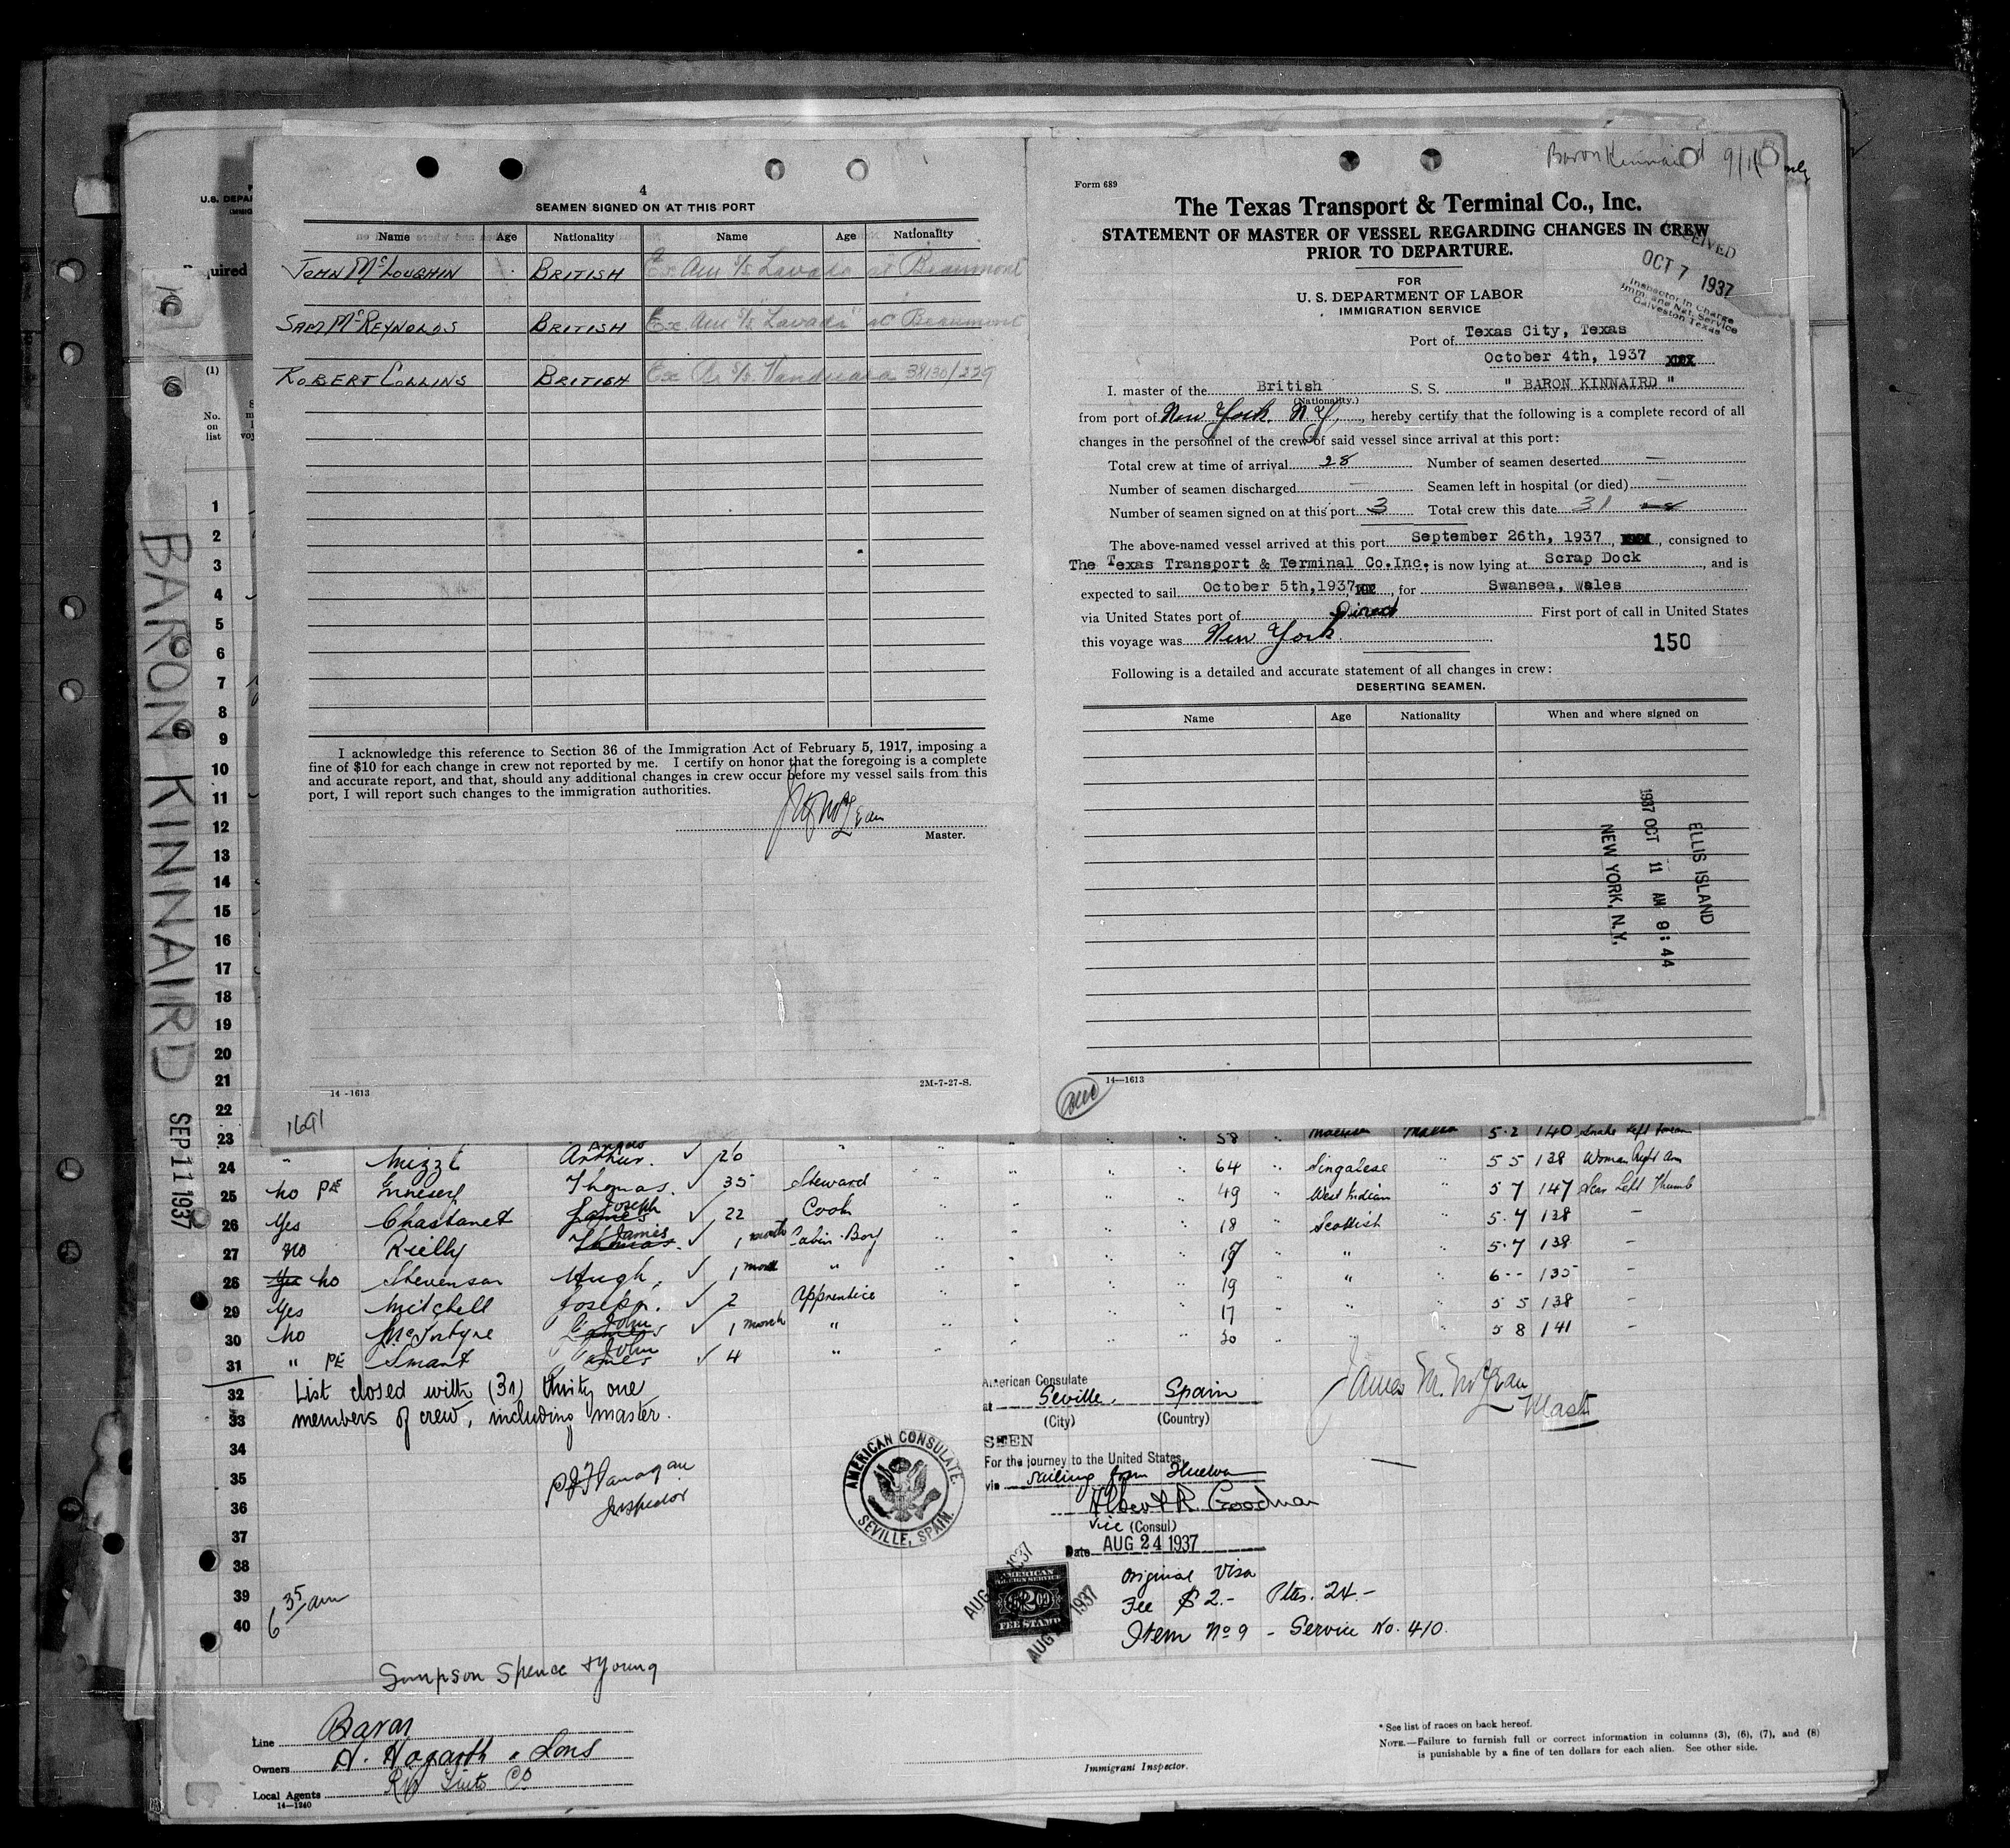 4
SEAMEN SIGNED ON AT THIS PORT
Name Age Nationality Name Age Nationality
JOHN McLOUGHIN BRITISH Ex Am S/S Lavada at Beaumont
SAM McREYNOLDS BRITISH Ex Am S/S "Lavada" at Beaumont
ROBERT COLLINS BRITISH Ex S/S 38130/229
I acknowledge this reference to Section 36 of the Immigration Act of February 5, 1917, imposing a
fine of $10 for each change in crew not reported by me. I certify on honor that the foregoing is a complete
and accurate report, and that, should any additional changes in crew occur before my vessel sails from this
port, I will report such changes to the immigration authorities.
Master.
14-1613 2M-7-27-S.
1691
Baron Kinnaird 9/11
Form 689
The Texas Transport & Terminal Co., Inc.
STATEMENT OF MASTER OF VESSEL REGARDING CHANGES IN CREW
PRIOR TO DEPARTURE.
FOR
U. S. DEPARTMENT OF LABOR
IMMIGRATION SERVICE
RECEIVED
OCT 7 1937
Inspector in Charge
Imm. and Nat. Service
Galveston Texas
Port of Texas City, Texas
October 4th, 1937
I. master of the British S. S. " BARON KINNAIRD "
(Nationality.)
from port of New York. N.Y., hereby certify that the following is a complete record of all
changes in the personnel of the crew of said vessel since arrival at this port:
Total crew at time of arrival 28 Number of seamen deserted —
Number of seamen discharged — Seamen left in hospital (or died) —
Number of seamen signed on at this port 3 Total crew this date 31
The above-named vessel arrived at this port September 26th, 1937, consigned to
The Texas Transport & Terminal Co.Inc. is now lying at Scrap Dock, and is
expected to sail October 5th,1937, for Swansea, Wales
via United States port of Direct First port of call in United States
this voyage was New York.
150
Following is a detailed and accurate statement of all changes in crew:
DESERTING SEAMEN.
Name Age Nationality When and where signed on
ELLIS ISLAND
1937 OCT 11 AM 9:44
NEW YORK, N.Y.
14—1613
U.S. DEPAR
quired
(1)
No.
on
list
BARON KINNAIRD
SEP 11 1937
1
2
3
4
5
6
7
8
9
10
11
12
13
14
15
16
17
18
19
20
21
22
23 58 5·2 140
24 " Mizzi Angelo Arthur. ✓ 20 64 Singalese 5 5 138 Woman Right Arm
25 no PE Thomas. ✓ 35 Steward 49 West Indian 5 7 147 Scar Left Thumb
26 Yes Chastanet Joseph James ✓ 22 Cook 18 Scottish 5·7 138 —
27 no Reilly James Thomas. ✓ 1 month Cabin-Boy " 5·7 138 —
28 Yes no Stevenson Hugh. ✓ 1 month " 19 " 6-- 135 —
29 Yes Mitchell Joseph. ✓ 2 Apprentice 17 " 5 5 138 —
30 no McIntyre John James ✓ 1 month " 20 5 8 141 —
31 " PE Smart John James ✓ 4 "
32 List closed with (31) thirty one
33 members of crew, including master.
34
35
36
37
38
39
40
Inspector
6 35/am
American Consulate
at Seville, Spain
(City) (Country)
SEEN
For the journey to the United States,
via sailing from Huelva
Albert R. Goodman
Vice (Consul)
Date AUG 24 1937
AMERICAN CONSULATE.
SEVILLE, SPAIN.
AMERICAN
FOREIGN SERVICE
FEE STAMP
Original Visa
Fee $2.- Ptas. 24.-
Item No 9 - Service No. 410.
Master
Sampson Spence & Young
Line Baron
Owners H. Hogarth & Sons
Local Agents Rio Tinto Co
14—1240
Immigrant Inspector.
* See list of races on back hereof.
NOTE.—Failure to furnish full or correct information in columns (3), (6), (7), and (8)
is punishable by a fine of ten dollars for each alien. See other side.